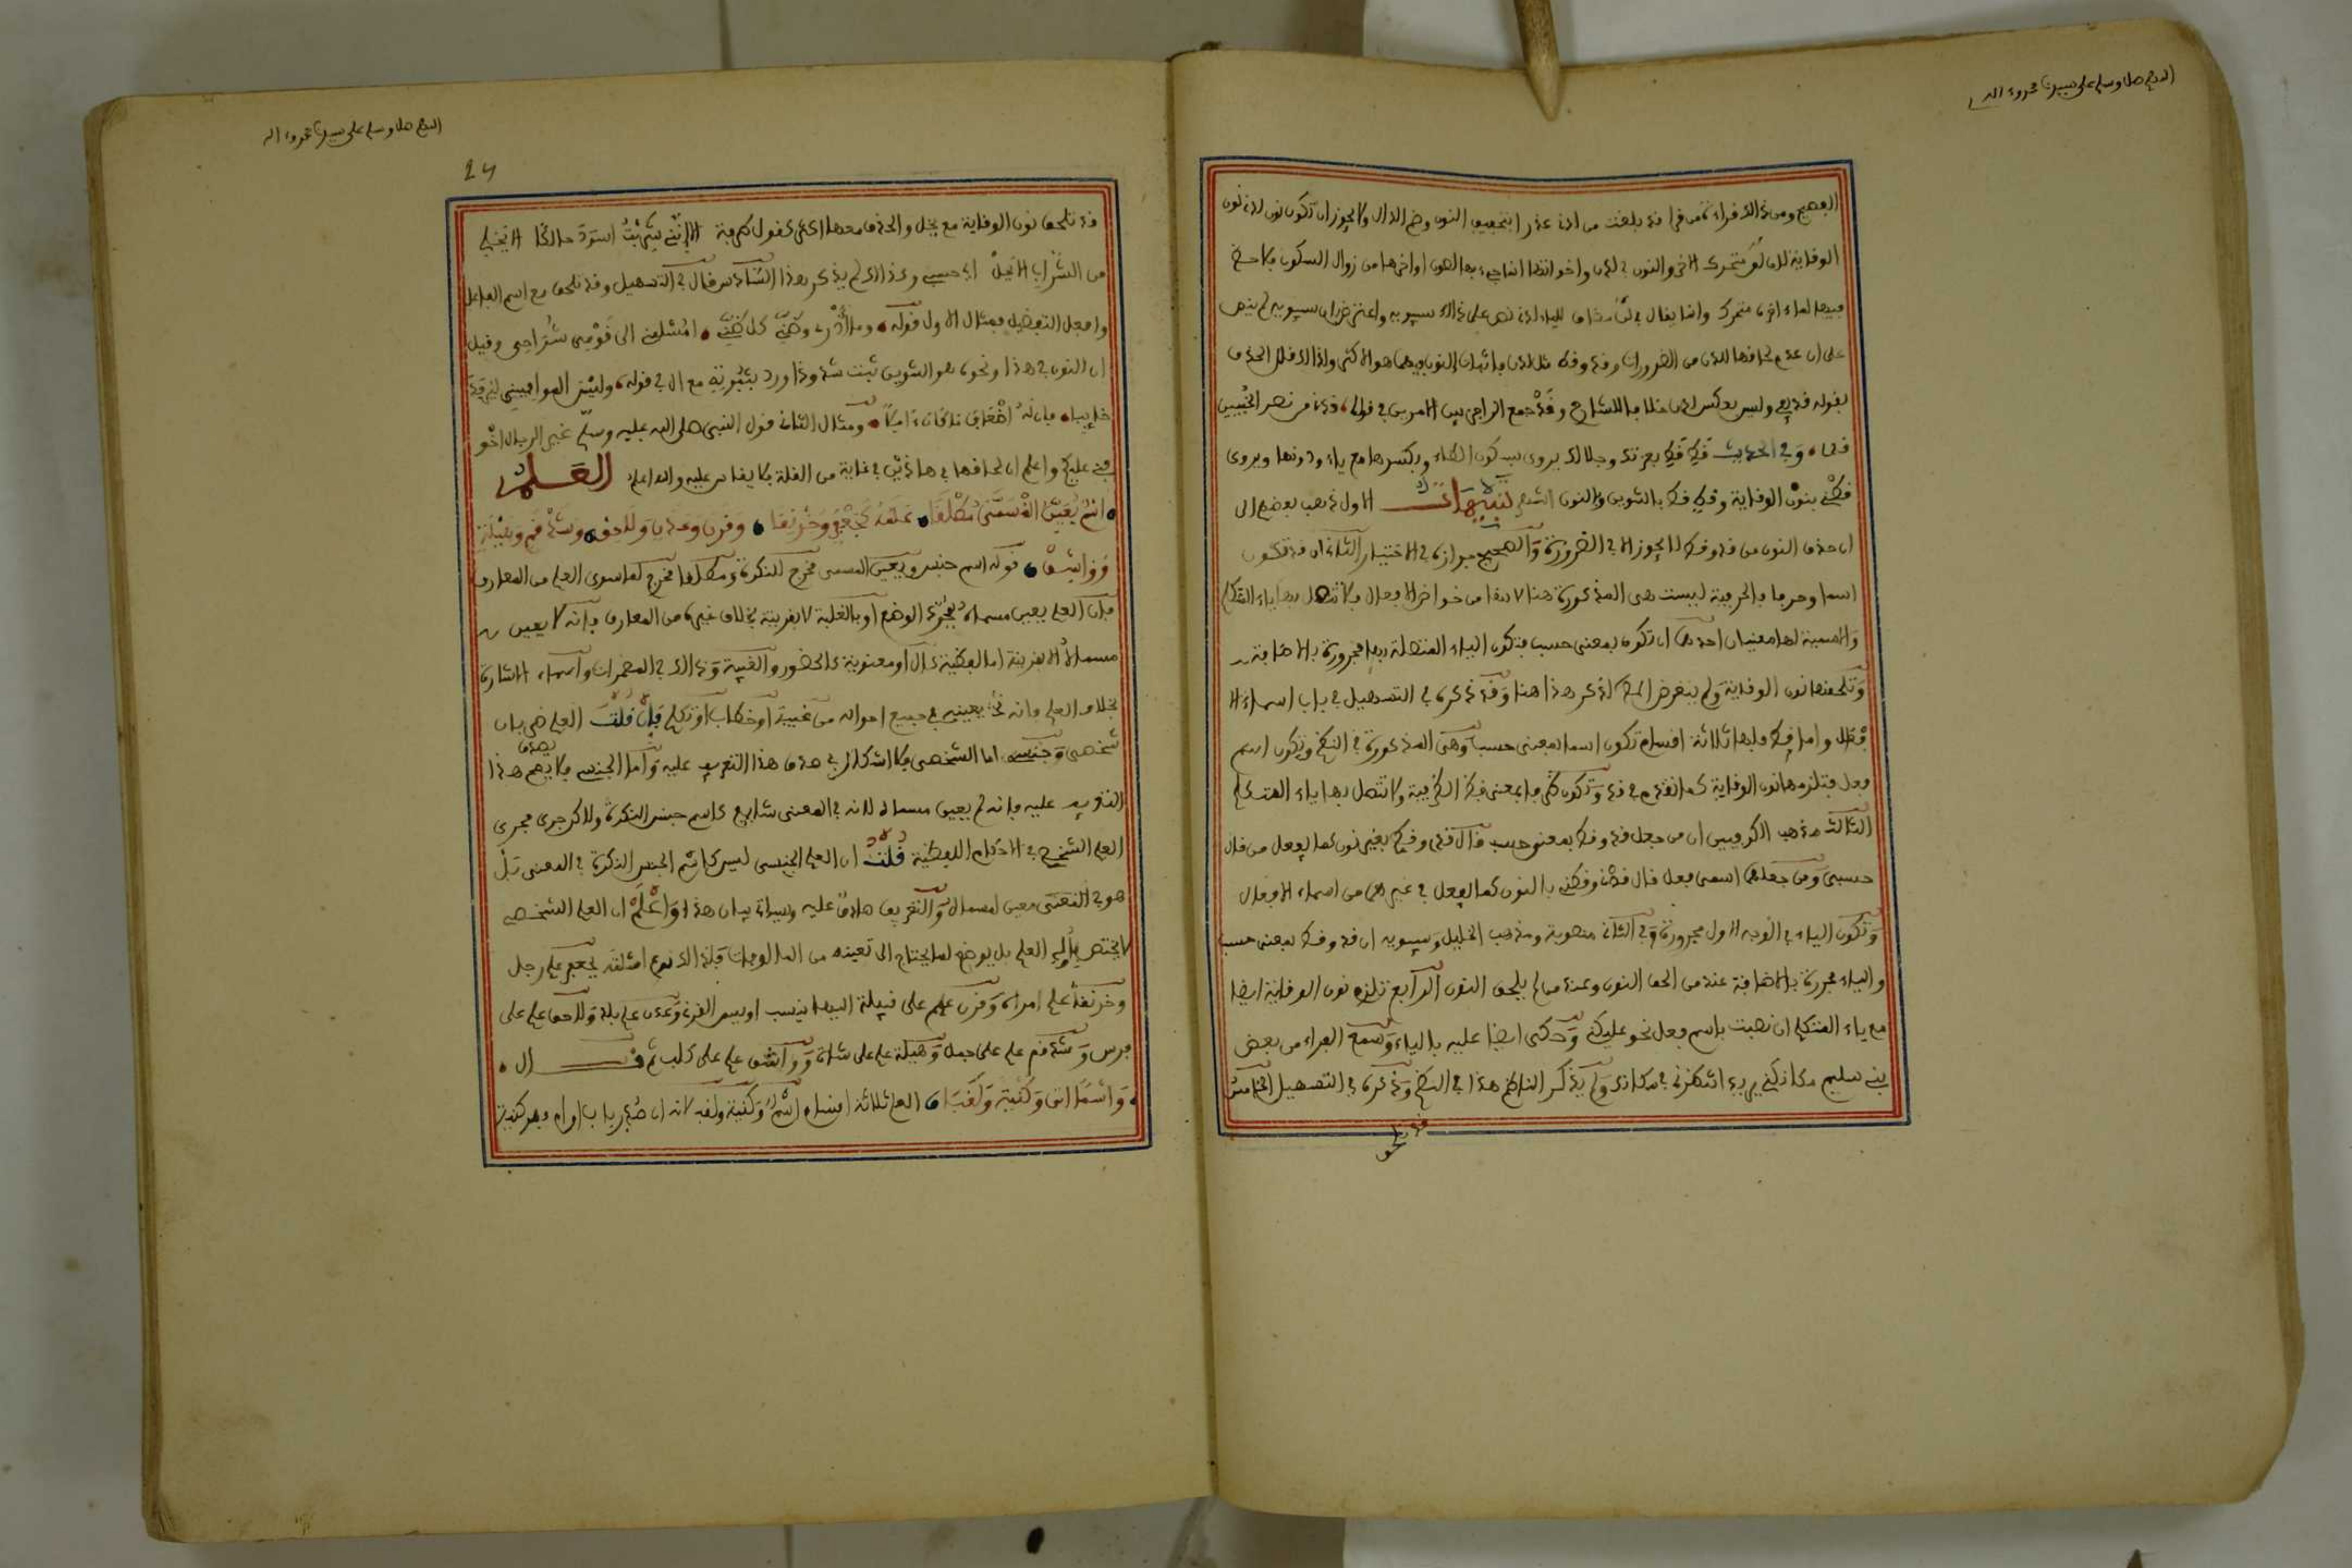 اللهم صل وسلم على سيدنا محمد وءاله
الفصيح ومن ذالك قراءة من قرا قد بلغت من لدنى عذرا بتخفيف النون وضم الدال ولا يجوز ان تكون نون لدن نون
الوقاية للدن لو متحرك الاخر والنون في لدن واخواتها انما جيء بها لصون اواخرها من زوال السكون فلا حظ
فيها لما ءاخره متحرك وانما يقال في لد مضاف للياء لدى نص على ذالك سيبويه واعترض ان سيبويه لم ينص
على ان عدم لحاقها للدن من الضرورات وقد وقط مثل لدن فاثبات النون فيهما هو الاكثر ولذا لك قلل الحذف
بقوله قد يفي وليس بعكس لدن خلافا للشارح وقد جمع الراجز بين الامرين في قوله قدنى من نصر الخبيبين
قدى وفي الحديث قط قط بعزتك وجلالك يروى بسكون الطاء وبكسرها مع ياء ودونها ويروى
قطنى بنون الوقاية وقط قط بالتنوين والنون اشهر تنبيهات الاول ذهب بعضهم الى
ان حذف النون من قد وقط لا يجوز الا في الضرورة والصحيح جوازه في الاختيار الثانى ان قد تكون
اسما وحرفا فالحرفية ليست هى المذكورة هنا لانها من خواص الافعال فلا تتصل بها ياء المتكلم
والاسمية لها معنيان احدهما ان تكون بمعنى حسب فتكون الياء المتصلة بها مجرورة بالاضافة
وتلحقها نون الوقاية ولم يتعرض الا لذكر هذا هنا وقد ذكره في التسهيل في باب اسماء الا
فعال واما قط فلها ثلاثة اقسام تكون اسما بمعنى حسب وهى المذكورة في النظم وتكون اسم
فعل فتلزمها نون الوقاية كما تقدم في قد وتكون ظرفا بمعنى قط الظرفية ولا تتصل بها ياء المتكلم
الثالث مذهب الكوفيين ان من جعل قد وقط بمعنى حسب قال قدى وقطى بغير نون كما يفعل من قال
حسبى ومن جعلهما اسمى فعل قال قدنى وقطنى بالنون كما يفعل في غيرهما من اسماء الافعال
وتكون الياء في الوجه الاول مجرورة وفي الثانى منصوبة ومذهب الخليل وسيبويه ان قد وقط بمعنى حسب
والياء مجرورة بالاضافة عند من الحق النون وعند من لم يلحق النون الرابع تلزم نون الوقاية ايضا
مع ياء المتكلم ان نصبت باسم فعل نحو عليكنى وحكى ايضا عليه بالياء وسمع الفراء من بعض
بنى سليم مكانكنى يريد انتظرنى في مكانى ولم يذكر الناظم هذا في النظم وذكره في التسهيل الخامس
قد تلحق
اللهم صل وسلم على سيدنا محمد وءاله
24
قد تلحق نون الوقاية مع بجل والحذف معها اكثر كقول طرفة الا اننى شربت اسود حالكا الا بجلى
من الشراب الا بجل اي حسبي وكذالك لم يذكر هذا الشارح قال في التسهيل وقد تلحق مع اسم الفاعل
وافعل التفضيل فمثال الاول قوله وما ادرى وظنى كل ظنى امسلمنى الى قومى شراحى وقيل
ان النون في هذا ونحوه هو التنوين ثبت شذوذا ورد بثبوته مع ال في قوله وليس الموافينى ليرفد
خائبا فان له اضعاف ما كان ءاملا ومثال الثانى قول النبى صلى الله عليه وسلم غير الدجال اخو
فنى عليكم واعلم ان لحاقها في هاذين في غاية من القلة فلا يقاس عليه والله اعلم العلم
اسم يعين المسمى مطلقا علمه كجعفر وخرنقا وقرن وعدن ولاحق وشذقم وهيلة
وواشق قوله اسم جنس ويعين المسمى مخرج للنكرة ومطلقا مخرج لما سوى العلم من المعارف
فان العلم يعين مسماه بمجرد الوضع او بالغلبة لا بقرينة بخلاف غيره من المعارف فانه لا يعين
مسماه الا بقرينة اما لفظية كال او معنوية كالحضور والغيبة وذالك في المضمرات واسماء الاشارة
بخلاف العلم فانه يعينه في جميع احواله من غيبة او خطاب او تكلم فان قلت العلم ضربان
شخصى وجنسى اما الشخصى فلا اشكال في صدق هذا التعريف عليه واما الجنسى فلا يصدق هذا
التعريف عليه فانه لم يعين مسماه لانه في المعنى شايع كاسم جنس النكرة ولاكن جرى مجرى
العلم الشخصى في الاحكام اللفظية قلت ان العلم الجنسى ليس كاسم الجنس النكرة في المعنى بل
هو في المعنى معين لمسماه والتعريف صادق عليه وسياتى بيان هذا واعلم ان العلم الشخصى
لا يختص باولى العلم بل يوضع لما يحتاج الى تعيينه من المالوفات فلذالك نوع امثلته بجعفر علم رجل
وخرنقا علم امراة وقرن علم على قبيلة اليها ينسب اويس القرنى وعدن علم بلد ولاحق علم على
فرس وشذقم علم على جمل وهيلة علم على شاة وواشق علم على كلب ثم قال
واسما اتى وكنية ولقبا العلم ثلاثة اقسام اسم وكنية ولقب لانه ان صدر باب او ام فهو كنية